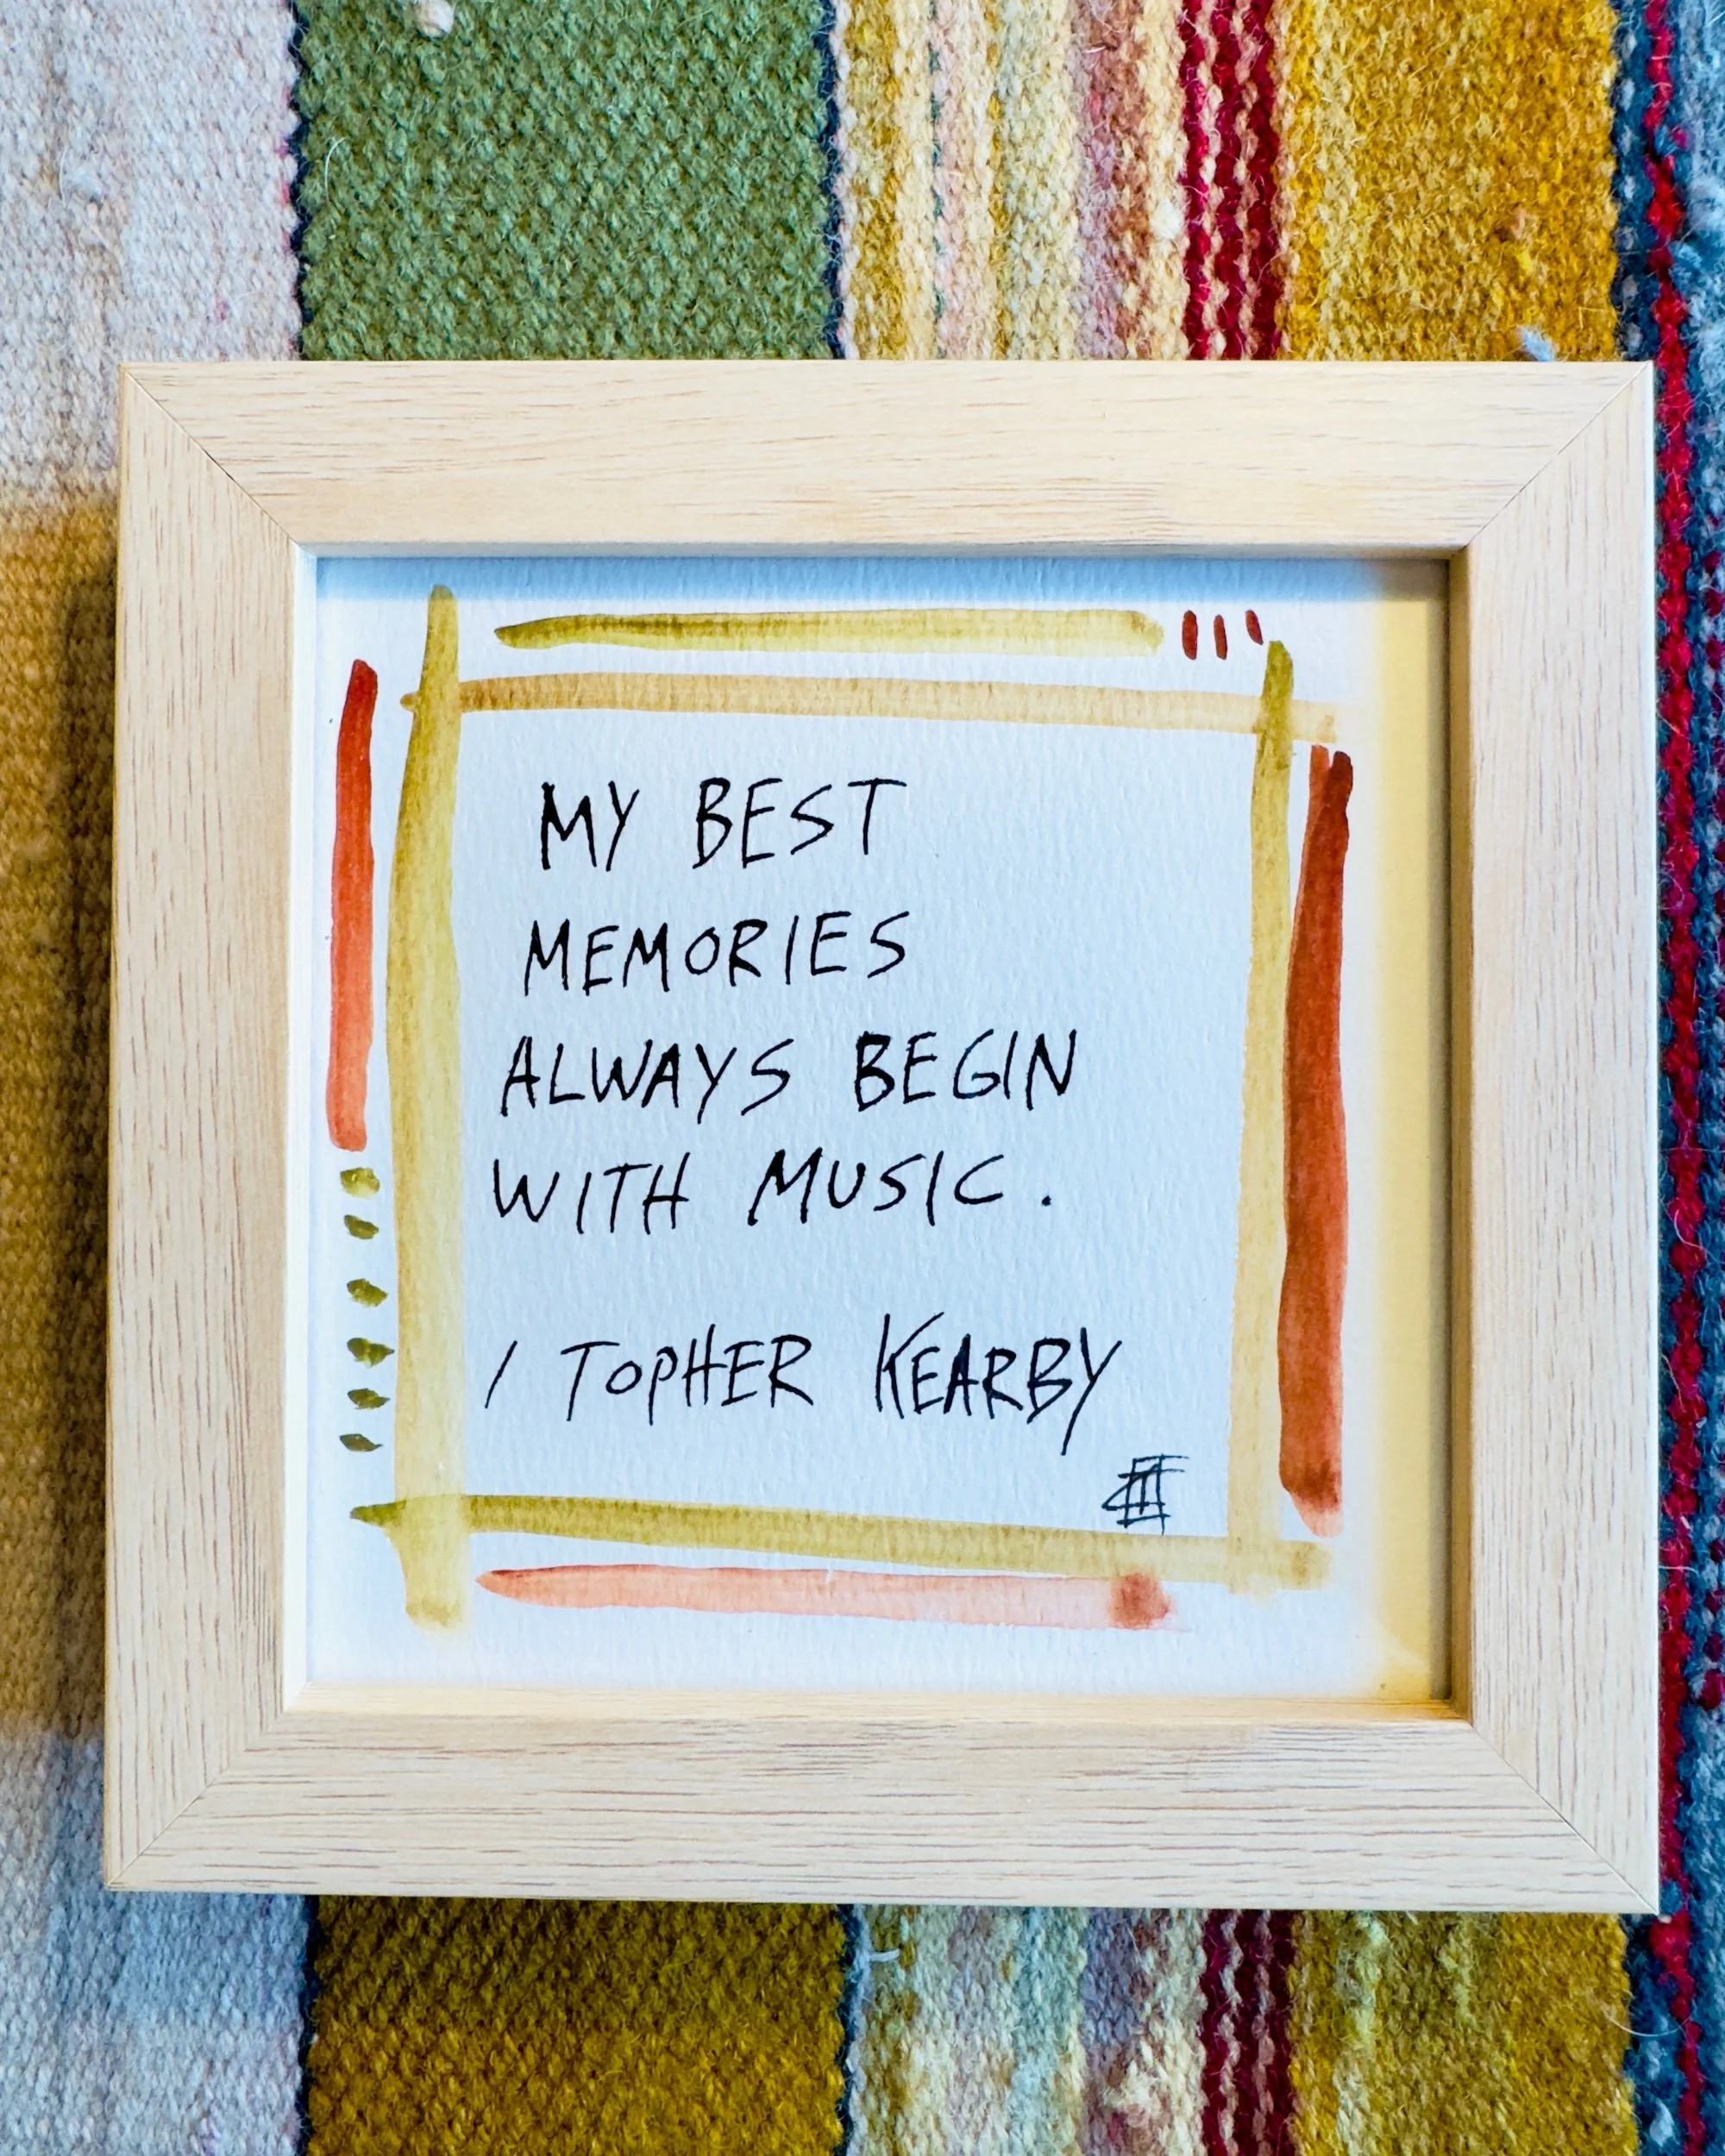 MY BEST
MEMORIES
ALWAYS BEGIN
WITH MUSIC.
/ TOPHER KEARBY